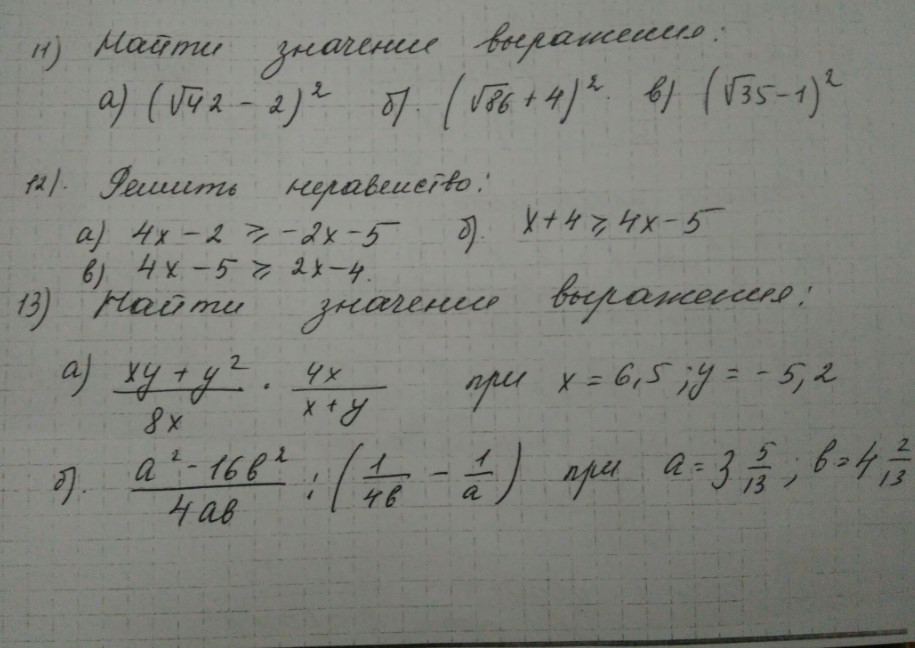 11) Найти значение выражения:
а) (√42 - 2)² б). (√86 + 4)². в) (√35 - 1)²
12). Решить неравенство:
а) 4x - 2 ⩾ -2x - 5 б). x + 4 ⩾ 4x - 5
в) 4x - 5 ⩾ 2x - 4.
13) Найти значение выражения:
а) (xy + y²)/(8x) · (4x)/(x + y) при x = 6,5; y = -5,2
б). (a² - 16в²)/(4aв) : (1/(4в) - 1/a) при a = 3 5/13; в = 4 2/13